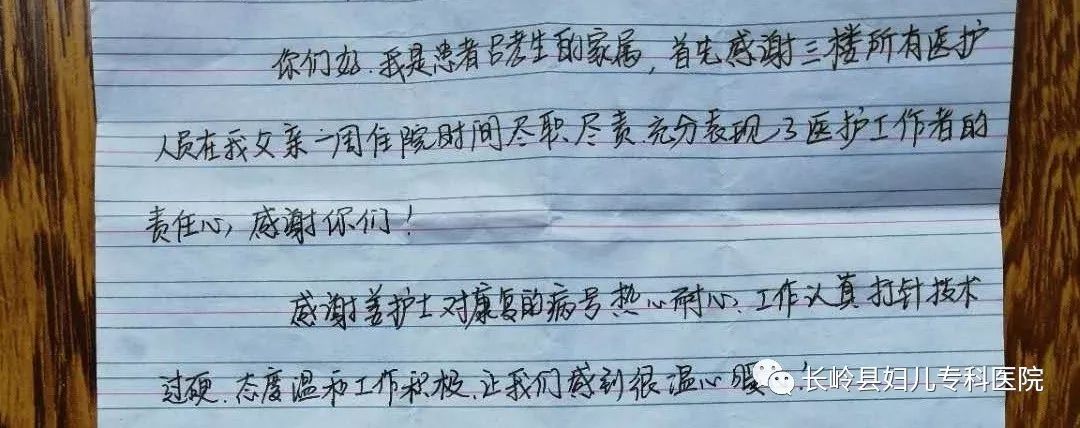 你们好.我是患者吕孝生的家属,首先感谢三楼所有医护
人员在我父亲一周住院时间尽职.尽责.充分表现了医护工作者的
责任心,感谢你们!
感谢姜护士对康复的病号热心耐心.工作认真打针技术
过硬.态度温和工作积极.让我们感到很温心暖
长岭县妇儿专科医院